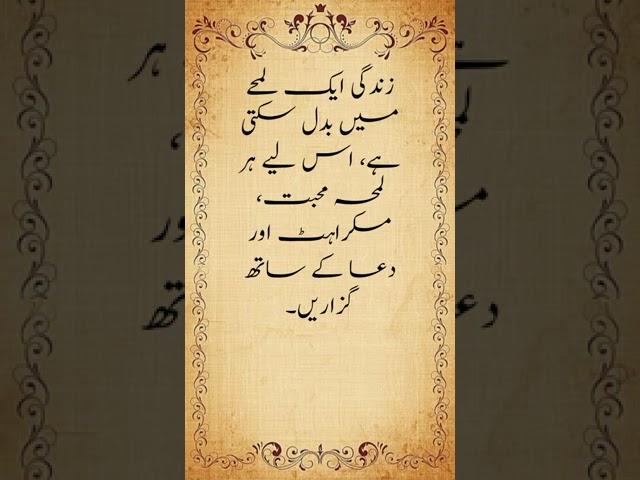 زندگی ایک لمحے
میں بدل سکتی
ہے، اس لیے ہر
لمحہ محبت،
مسکراہٹ اور
دعا کے ساتھ
گزاریں۔